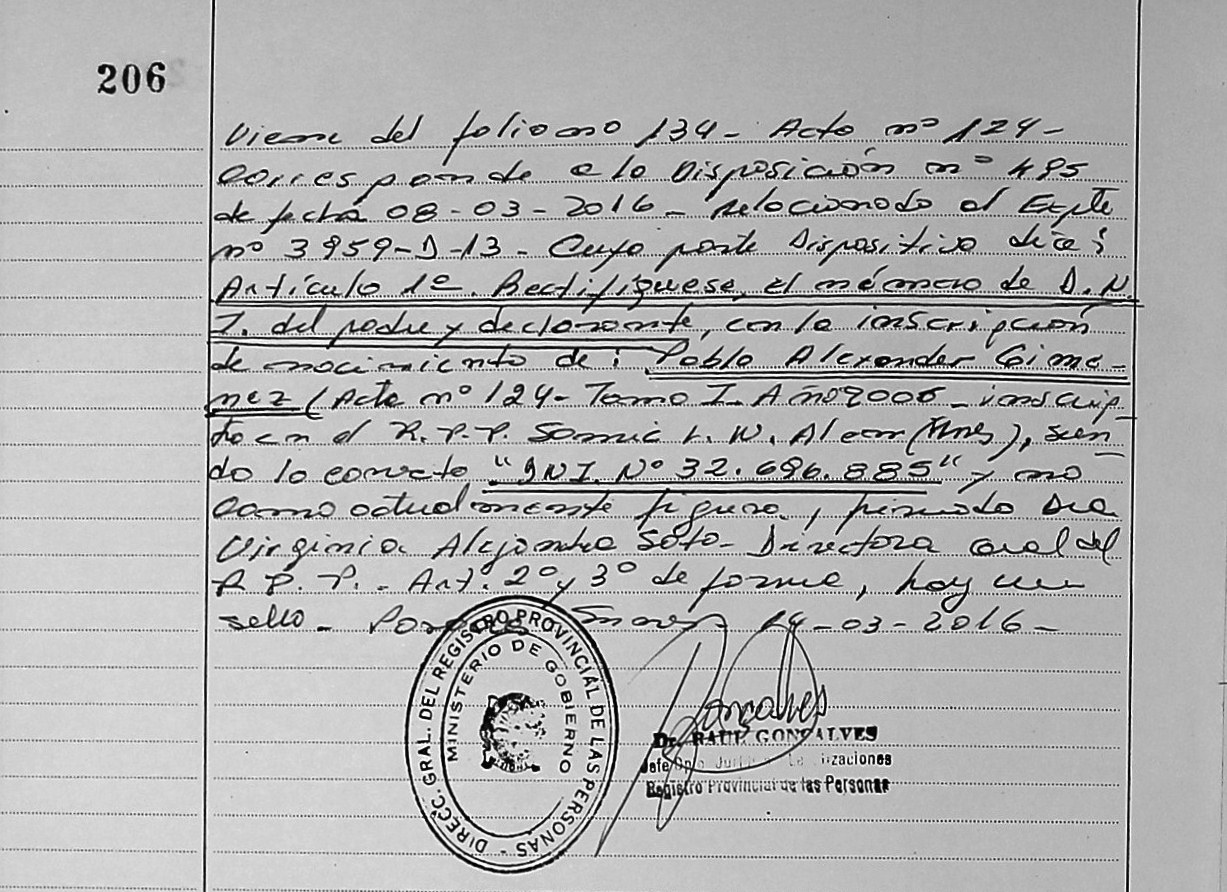 206
Viene del folio nº 134 - Acta nº 124 -
Corresponde a la Disposición nº 495
de fecha 08-03-2016 - relacionado al Expte
nº 3959-D-13 - Cuya parte Dispositiva dice:
Artículo 1º. Rectifíquese, el número de D.N.
I. del padre y declarante, en la inscripción
de nacimiento de: Pablo Alexander Gime-
nez (Acta nº 124 - Tomo I - Año 2006 - inscrip-
to en el R.P.P. Samic L. N. Alem (Mnes), sien-
do lo correcto "DNI. Nº 32.696.885" y no
como actualmente figura, firmado Dra
Virginia Alejandra Soto - Directora Gral del
R.P.P. - Art. 2º y 3º de forma, hay un
sello - Posadas Mnes - 14-03-2016 -
DIRECC. GRAL. DEL REGISTRO PROVINCIAL DE LAS PERSONAS -
MINISTERIO DE GOBIERNO
Gonsalves
Dr. RAUL GONSALVES
Jefe Dpto
Registro Provincial de las Personas